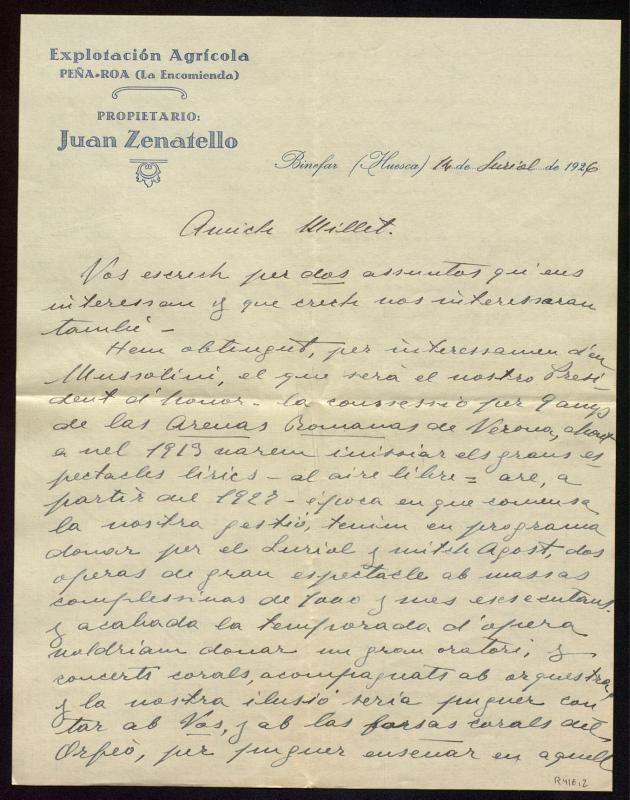 Explotación Agrícola
PEÑA-ROA (La Encomienda)
PROPIETARIO:
Juan Zenatello
Binefar (Huesca) 14 de Juriol de 1926
Amich Millet.
Vos escrech per dos assuntos qu'ens
interessan y que crech vos interessaran
també -
Hem obtingut, per interessamen d'en
Mussolini, el que serà el nostro Presi-
dent d'honor - la conssessió per 9 anys
de las Arenas Romanas de Verona, ahont
a nel 1913 varem inissiar els grans es-
pectacles lirics - al aire libre = are, a
partir del 1927 - época en que comensa
la nostra gestió, tenim en programa
donar per el Juriol y mitch Agost, dos
operas de gran espectacle ab massas
complessivas de 1000 y mes essecutans.
y acabada la temporada d'opera
voldriam donar un gran oratori, y
concerts corals, acompagnats ab orquestra,
y la nostra ilusió seria puguer con-
tar ab Vos, y ab las forsas corals del
Orfeó, per puguer ensenar en aquell
R416,2